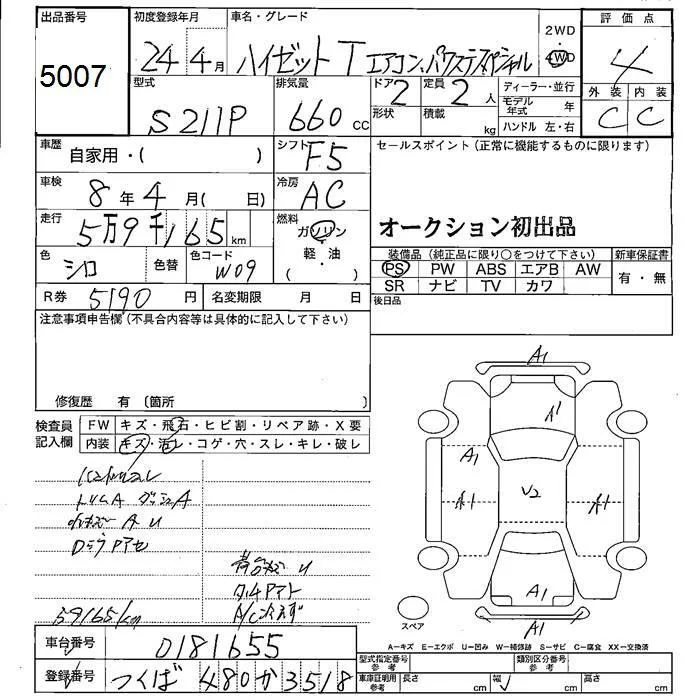 出品番号 初度登録年月 車名・グレード 2WD 評価点
5007 24年4月 ハイゼットT エアコン、パワステスペシャル 4WD 4
型式 排気量 ドア 定員 ディーラー・並行 外装 内装
S211P 660cc 2 2人 モデル年式 年 C C
形状 積載 kg ハンドル 左・右
車歴 自家用・( ) シフト F5 セールスポイント (正常に機能するものに限ります)
車検 8年4月( 日) 冷房 AC
走行 5万9千165km 燃料 ガソリン オークション初出品
軽・油
( )
色 シロ 色替 色コード W09
装備品 (純正品に限り○をつけて下さい) 新車保証書
PS PW ABS エアB AW 有・無
SR ナビ TV カワ
R券 5190円 名変期限 月 日 後日品
注意事項申告欄(不具合内容等は具体的に記入して下さい)
修復歴 有 〔箇所 〕
検査員記入欄 FW キズ・飛石・ヒビ割・リペア跡・X要
内装 キズ・汚レ・コゲ・穴・スレ・キレ・破レ
トリムA ダッシュA
59165km A/C
A1
A1
A1
A1 V2 A1
A1
A1
スペア
A-キズ E-エクボ U-凹み W-補修跡 S-サビ C-腐食 XX-交換済
車台番号 0181655 型式指定番号 参考 類別区分番号 参考
登録番号 つくば 480 か 3518 車庫証明用 参考 長さ cm 幅 cm 高さ cm